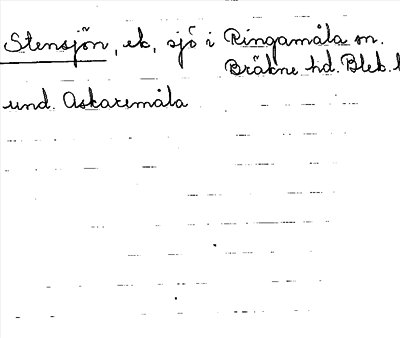 Stensjön, ek, sjö i Ringamåla sn.
Bräkne hd. Blek. l
und. Askaremåla